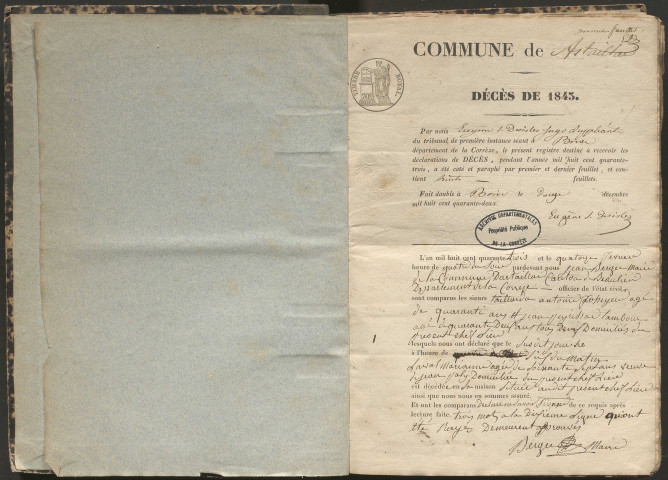 premier feuillet
COMMUNE de Astaillac
TIMBRE ROYAL
DÉCÈS DE 1843.
Par nous Eugène juge suppléant
du tribunal de première instance séant à Brive
département de la Corrèze, le présent registre destiné à recevoir les
déclarations de DÉCÈS, pendant l'année mil huit cent quarante-
trois, a été coté et paraphé par premier et dernier feuillet, et con-
tient feuillets.
Fait double à Brive le Douze décembre
mil huit cent quarante-deux.
Eugène
ARCHIVES DÉPARTEMENTALES
Propriété Publique
DE LA CORRÈZE
L'an mil huit cent quarante trois et le quatorze janvier
heure de du soir pardevant nous jean Berger Maire
de la Commune Dastaillac Canton de Beaulieu
Département de la Correze officier de l'état civil,
sont comparus les sieurs antoine agé
de quarante ans et jean tambour
agé de quarante Deux ans tous Deux Domiciliés du
présent chef lieu
lesquels nous ont déclaré que le susdit jour
à l'heure de du Matin
1
Laval Marianne agée de soixante sept ans veuve
de jean Domiciliée du present chef lieu
est décédée en sa maison située audit present chef lieu
ainsi que nous nous en sommes assuré.
Et ont les comparans déclaré ne savoir signer de ce requis après
lecture faite. trois mots a la dixieme ligne qui ont
été Rayés Demeurent aprouvés
Berger Maire